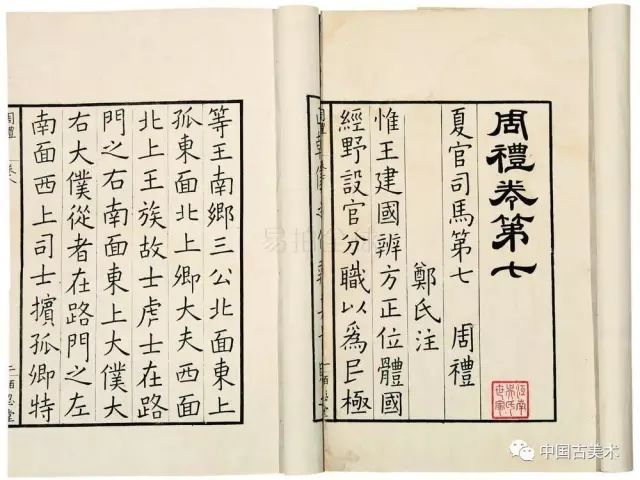 周禮卷第七
夏官司馬第七 周禮
鄭氏注
惟王建國辨方正位體國
經野設官分職以為民極
等王南鄉三公北面東上
孤東面北上卿大夫西面
北上王族故士虎士在路
門之右南面東上大僕大
右大僕從者在路門之左
南面西上司士擯孤卿特
周禮 卷八
中国古美术